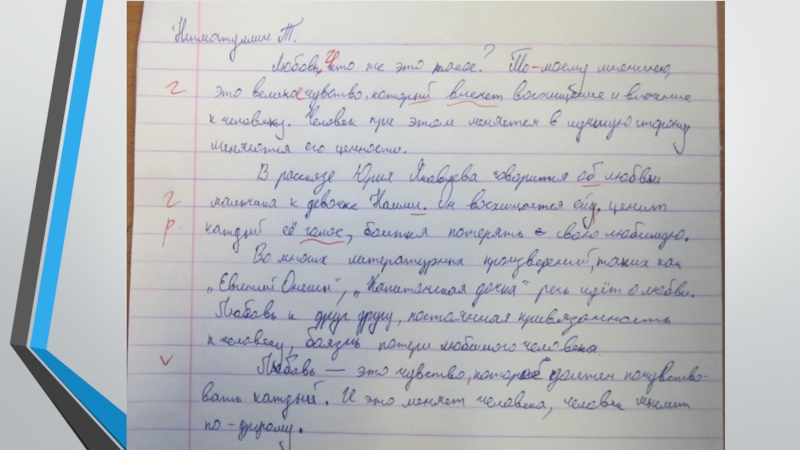 Нигматуллин Т.
Любовь, что же это такое? По-моему мнению,
Г это великое чувство, который влечет восхищение и влечение
к человеку. Человек при этом меняется в лучшую сторону
меняются его ценности.
В рассказе Юрия Яковлева говорится об любви
Г мальчика к девочке Наили. Он восхищается ей, ценит
Р каждый её голос, боится потерять свою любимую.
Во многих литературных произведений, таких как
„Евгений Онегин", „Капитанская дочка" речь идёт о любви.
Любовь к друг другу, постоянная привязанность
к человеку, боязнь потери любимого человека.
V Любовь — это чувство, которое должен почувство-
вать каждый. И это меняет человека, человек мыслит
по-другому.